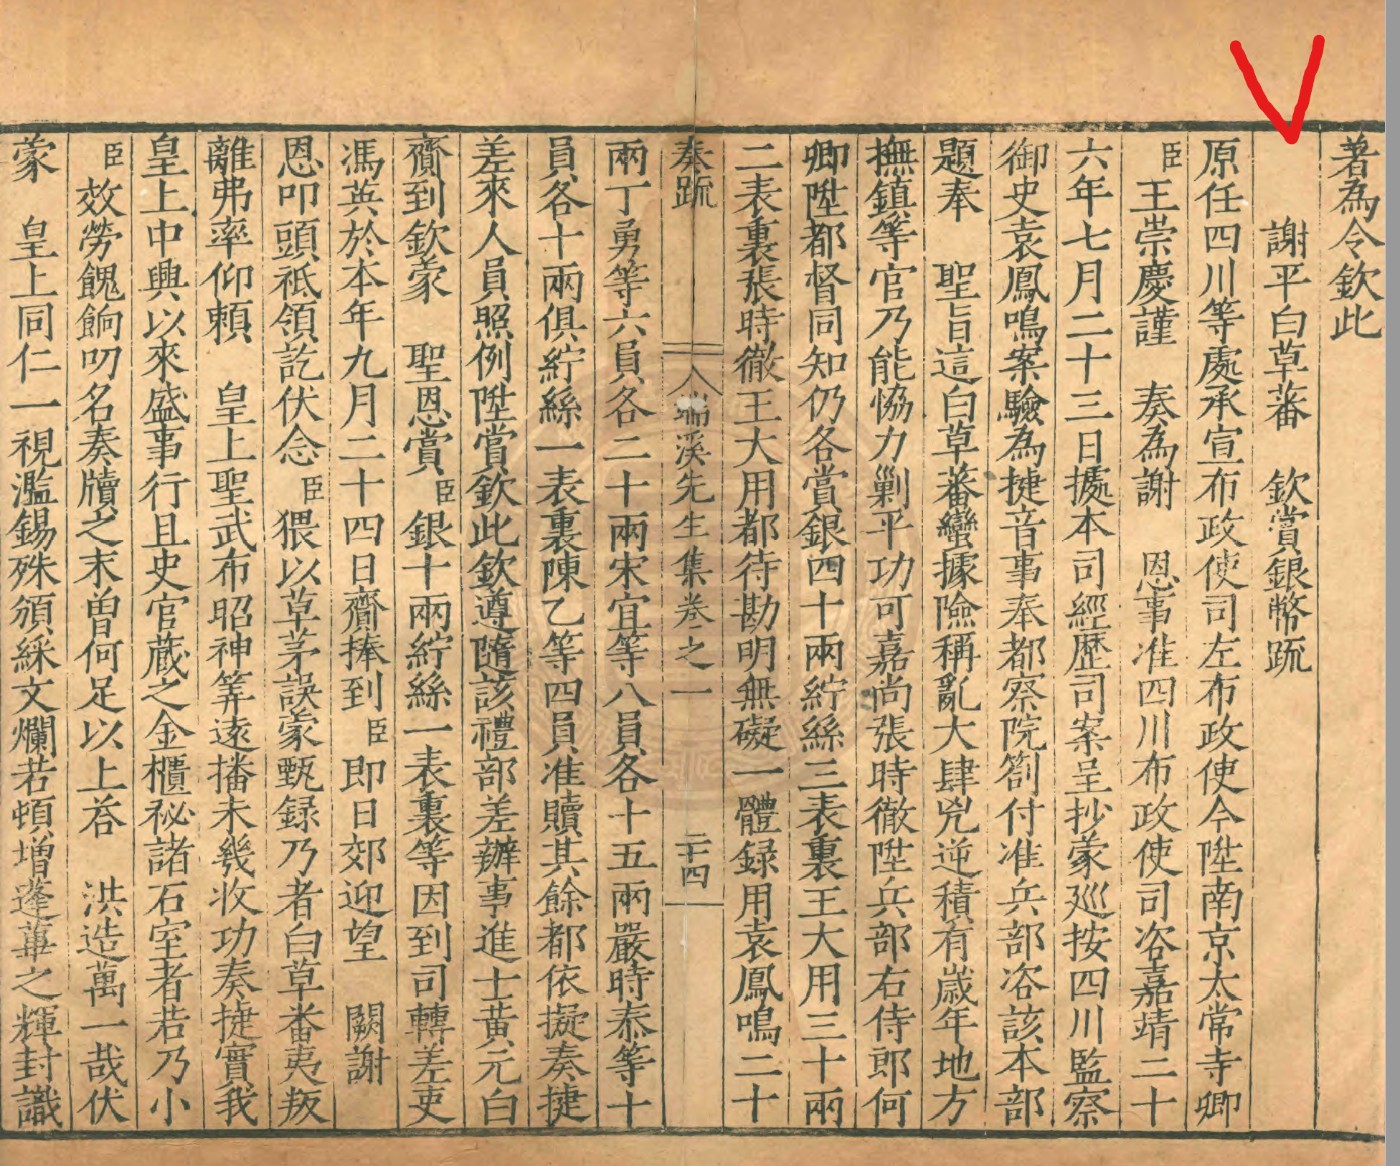 著為令欽此
謝平白草蕃　欽賞銀幣疏
原任四川等處承宣布政使司左布政使今陞南京太常寺卿
臣王崇慶謹　奏為謝　恩事准四川布政使司咨嘉靖二十
六年七月二十三日㨿本司經歷司案呈抄蒙廵按四川監察
御史袁鳳鳴案驗為捷音事奉都察院劄付准兵部咨該本部
題奉　聖旨這白草蕃蠻據險稱亂大肆兇逆積有歲年地方
撫鎮等官乃能恊力剿平功可嘉尚張時徹陞兵部右侍郎何
卿陞都督同知仍各賞銀四十兩紵絲三表裏王大用三十兩
二表裏張時徹王大用都待勘明無礙一體録用袁鳳鳴二十
奏疏　端溪先生集卷之一　二十四
兩丁勇等六員各二十兩宋宜等八員各十五兩嚴時泰等十
員各十兩俱紵絲一表裏陳乙等四員准贖其餘都依擬奏捷
差來人員照例陞賞欽此欽遵隨該禮部差辦事進士黃元白
齎到欽蒙　聖恩賞臣銀十兩紵絲一表裏等因到司轉差吏
馮英於本年九月二十四日齎捧到臣即日郊迎望　闕謝
恩叩頭祗領訖伏念臣猥以草茅誤蒙甄録乃者白草番夷叛
離弗率仰賴　皇上聖武布昭神筭逺播未幾收功奏捷實我
皇上中興以來盛事行且史官蔵之金櫃秘諸石室者若乃小
臣效勞餽餉叨名奏牘之末曽何足以上荅　洪造萬一哉伏
蒙　皇上同仁一視濫錫殊頒綵文爛若頓增蓬蓽之輝封識